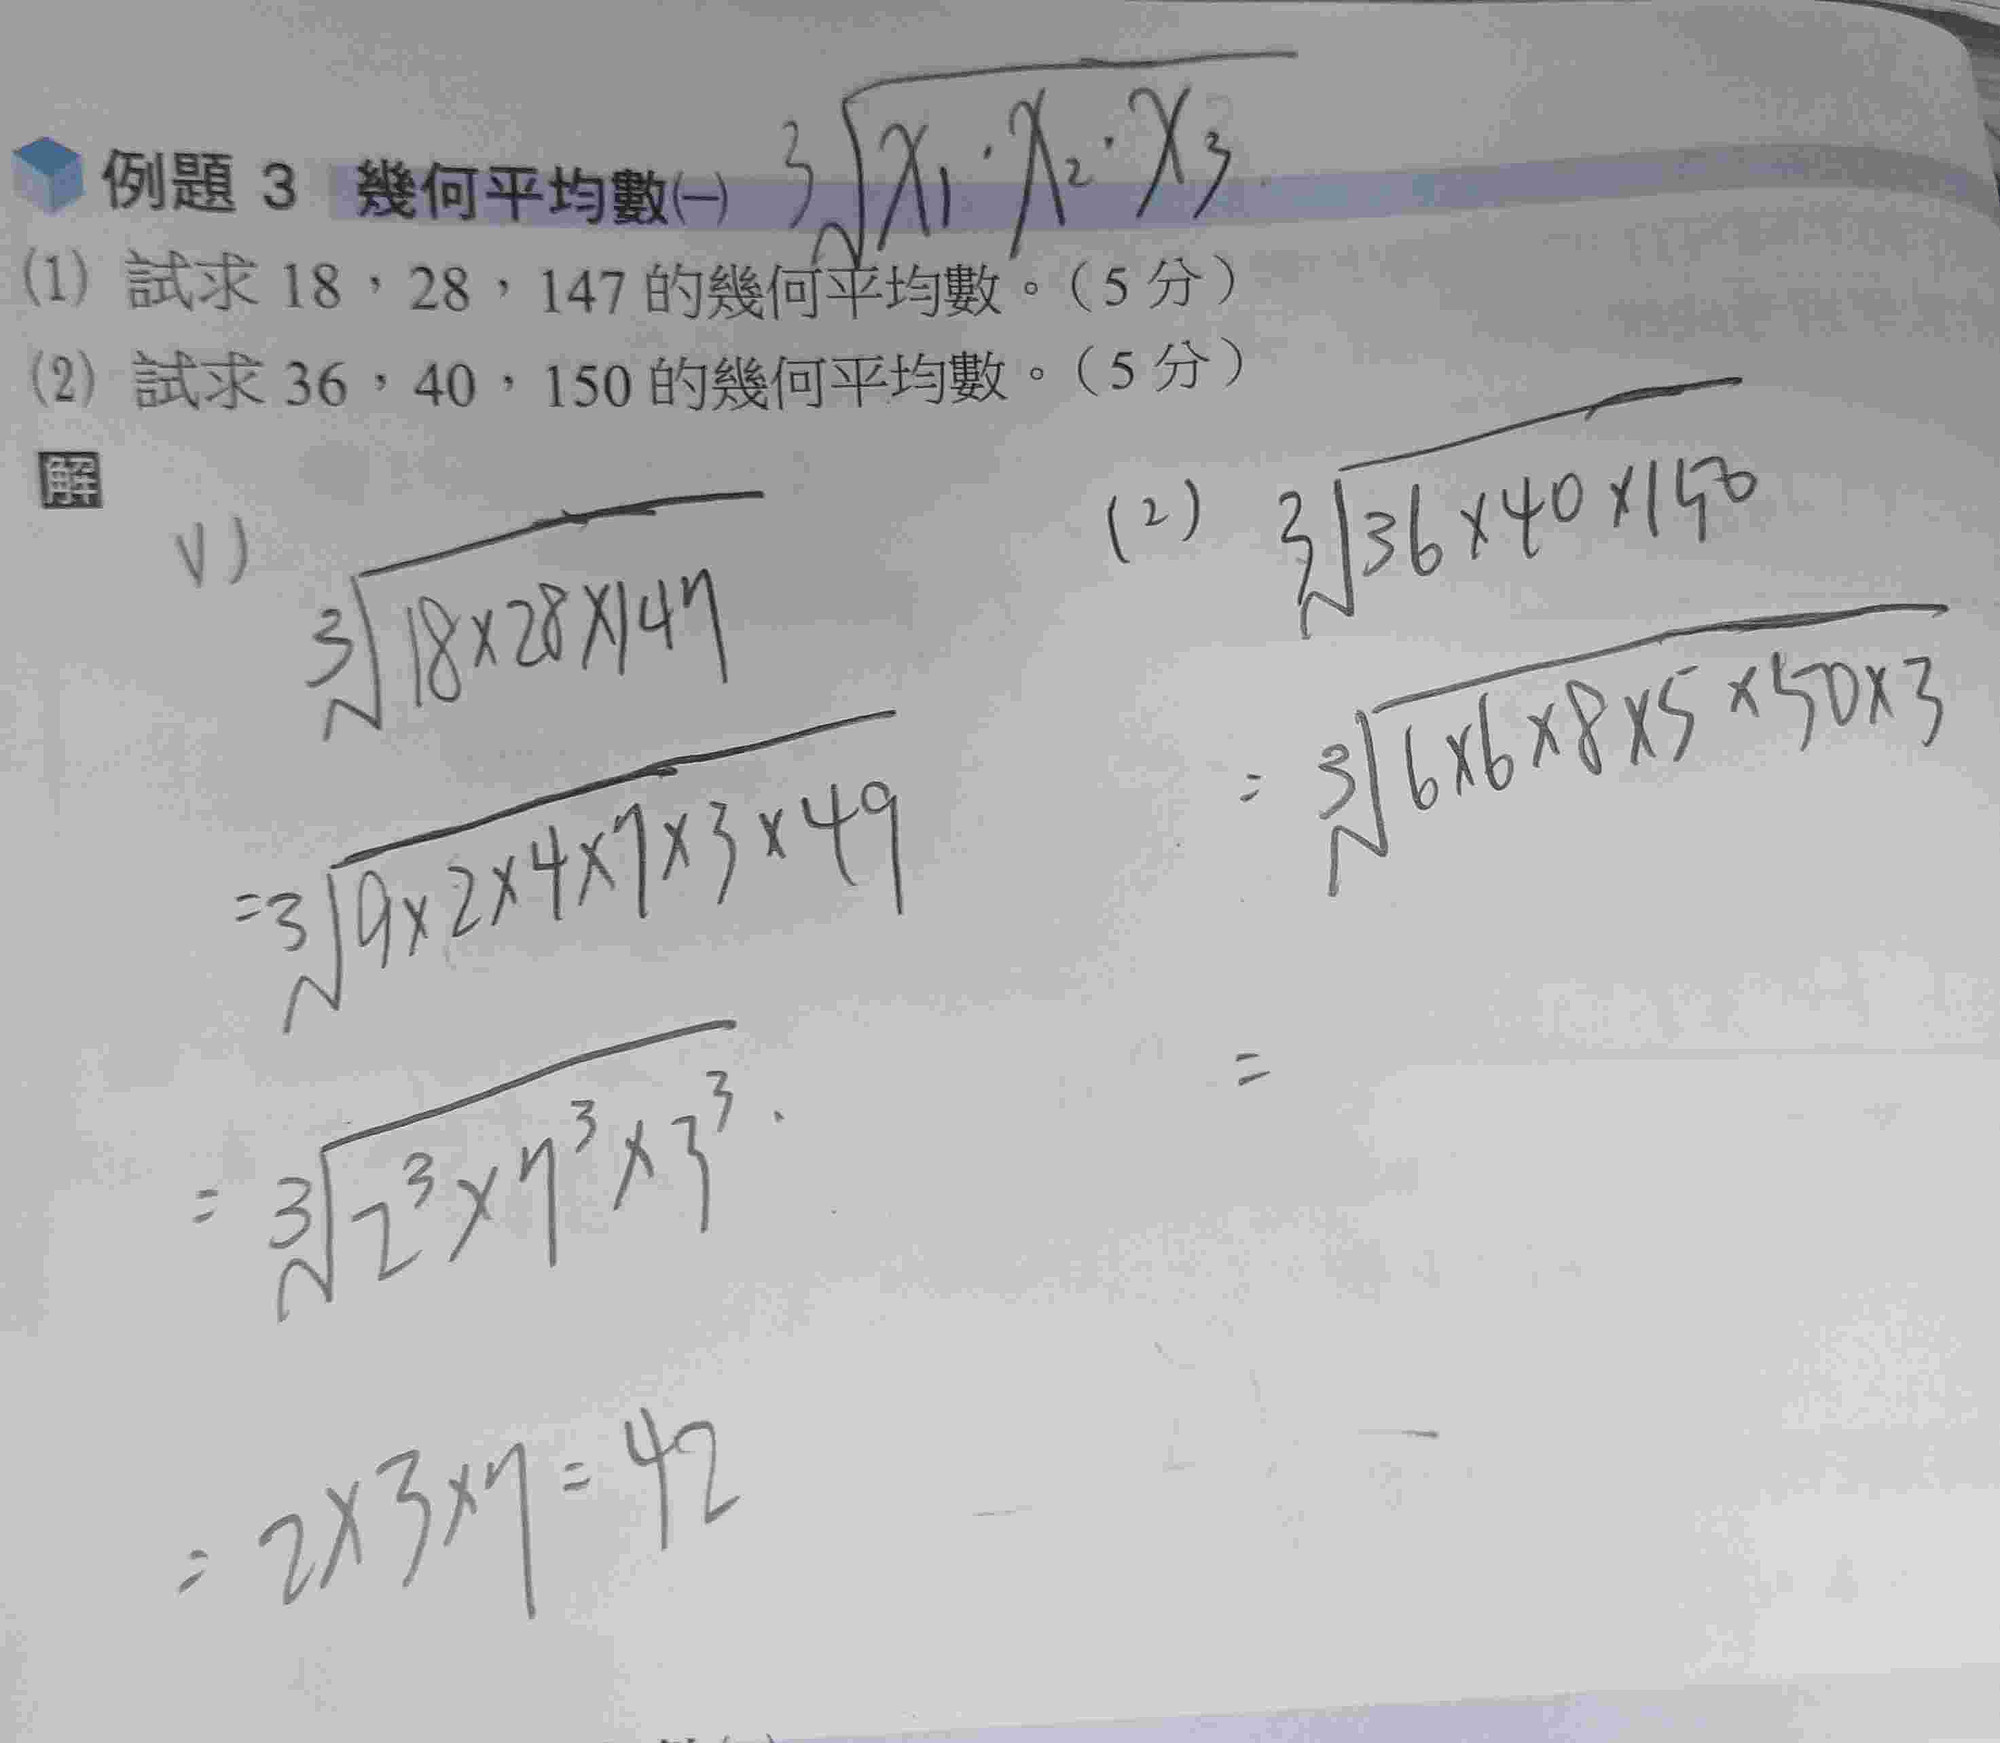 例題 3 幾何平均數㈠ ∛(x₁·x₂·x₃)
(1) 試求 18，28，147 的幾何平均數。(5 分)
(2) 試求 36，40，150 的幾何平均數。(5 分)
解
(1) ∛(18×28×147)
=∛(9×2×4×7×3×49)
=∛(2³×7³×3³)
=2×3×7=42
(2) ∛(36×40×150)
=∛(6×6×8×5×50×3)
=